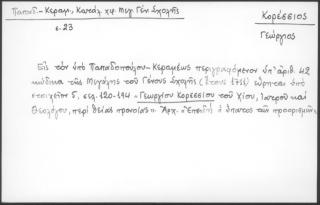 Παπαδ.-Κεραμ., Κατάλ. χφ. Μεγ. Γέν. Σχολῆς
σ. 23
ΚΟΡΕΣΣΙΟΣ
Γεώργιος
Εἰς τὸν ὑπὸ Παπαδοπούλου-Κεραμέως περιγραφόμενον ὑπ' ἀριθ. 42
κώδικα τῆς Μεγάλης τοῦ Γένους Σχολῆς (Ἔτους 1751) εὕρηται ὑπὸ
στοιχεῖον 5, σελ. 120-194 - Γεωργίου Κορεσσίου τοῦ Χίου, ἰατροῦ καὶ
Θεολόγου, περὶ θείας προνοίας». Ἀρχ. «Ἐπειδὴ ὁ ὕπατος τῶν προορισμῶν,